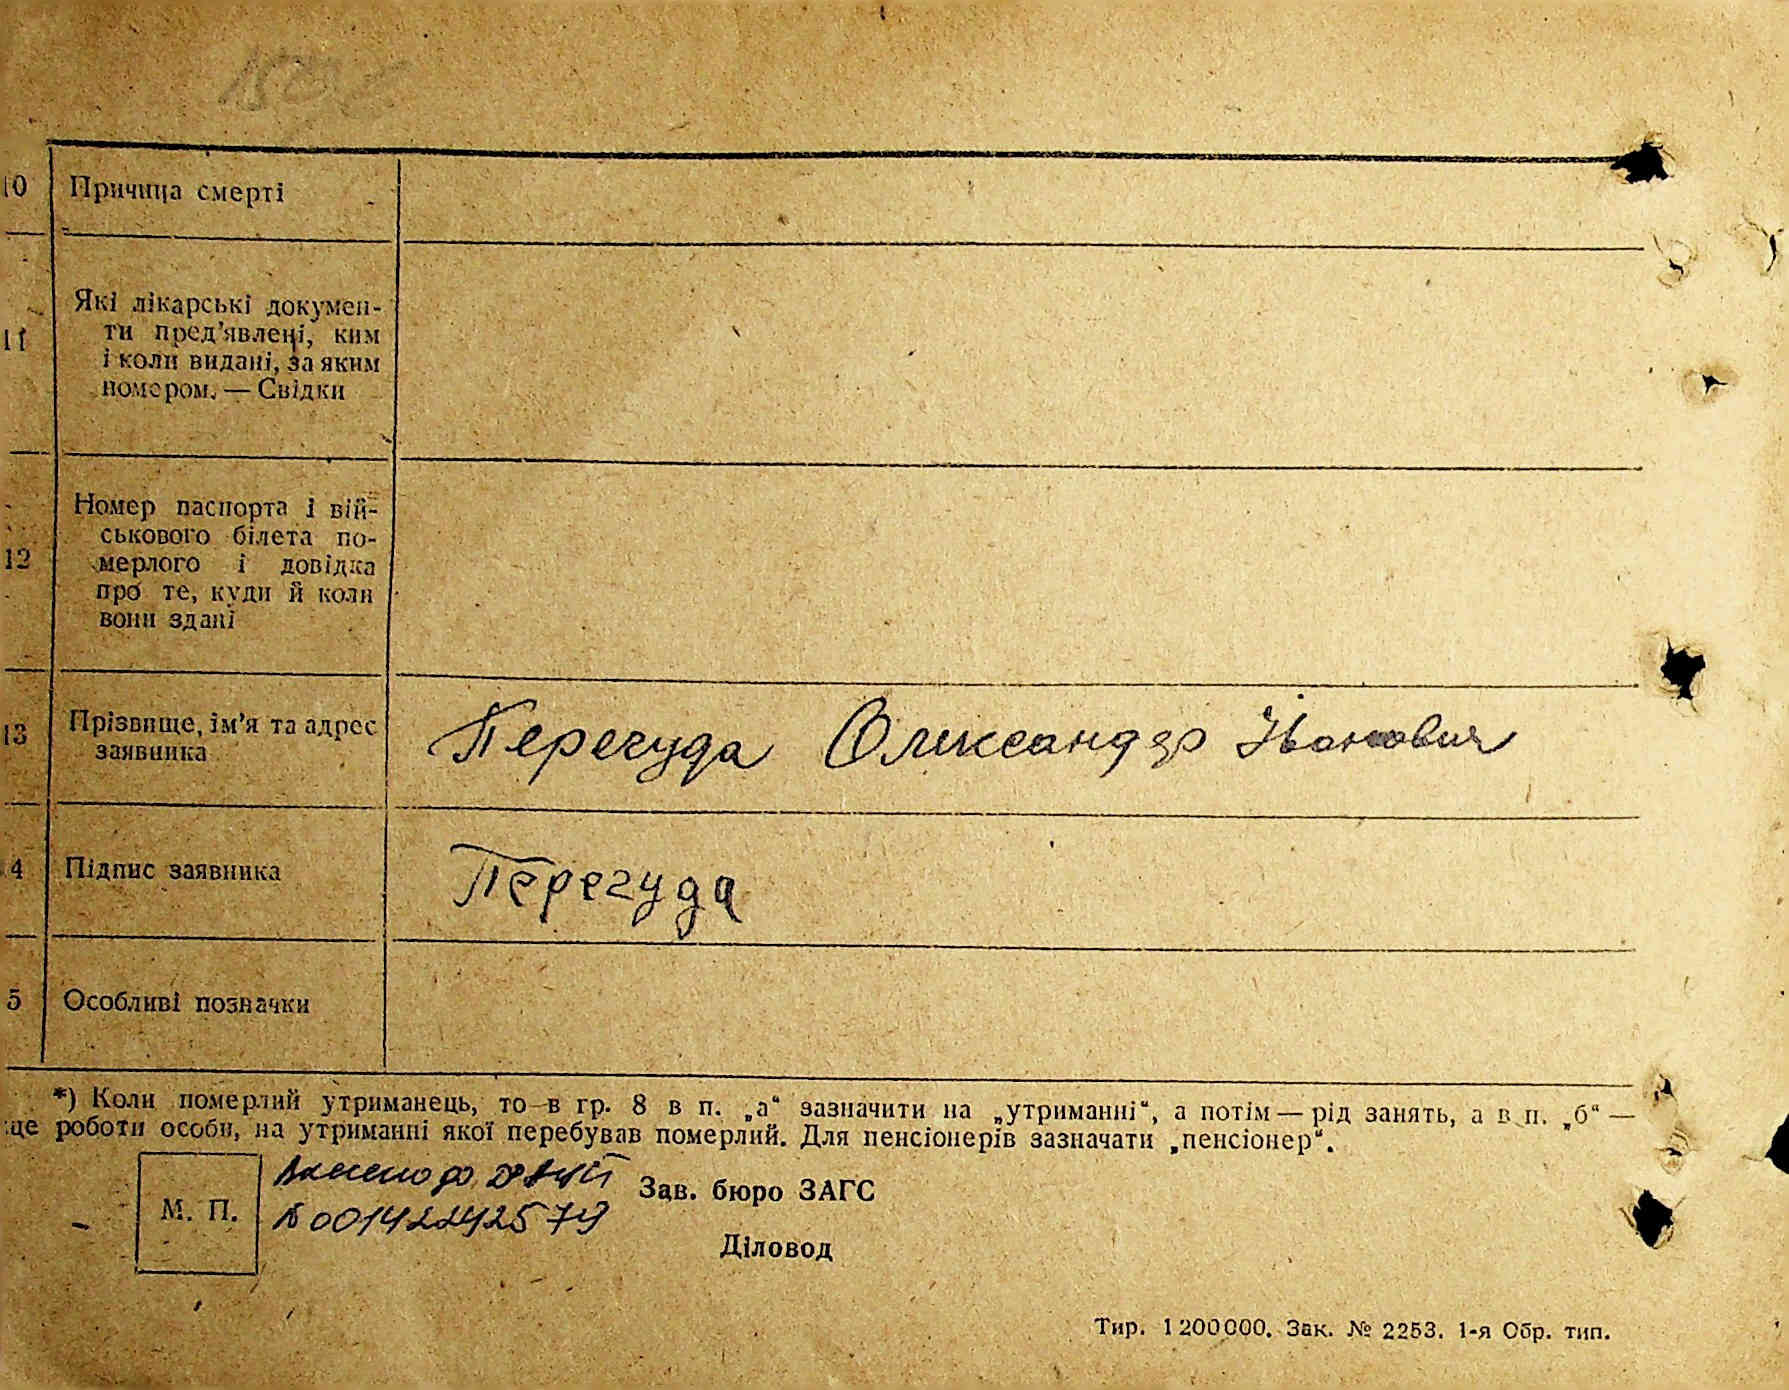 10 Причина смерті
11 Які лікарські докумен-
ти пред’явлені, ким
і коли видані, за яким
номером. — Свідки
12 Номер паспорта і вій-
ськового білета по-
мерлого і довідка
про те, куди й коли
вони здані
13 Прізвище, ім’я та адрес
заявника
Перегуда Олександр Іванович
4 Підпис заявника
Перегуда
5 Особливі позначки
*) Коли померлий утриманець, то в гр. 8 в п. „а“ зазначити на „утриманні“, а потім — рід занять, а в п. „б“ —
це роботи особи, на утриманні якої перебував померлий. Для пенсіонерів зазначати „пенсіонер“.
М. П.
Внесено до
№ 00142242579
Зав. бюро ЗАГС
Діловод
Тир. 1200000. Зак. № 2253. 1-я Обр. тип.